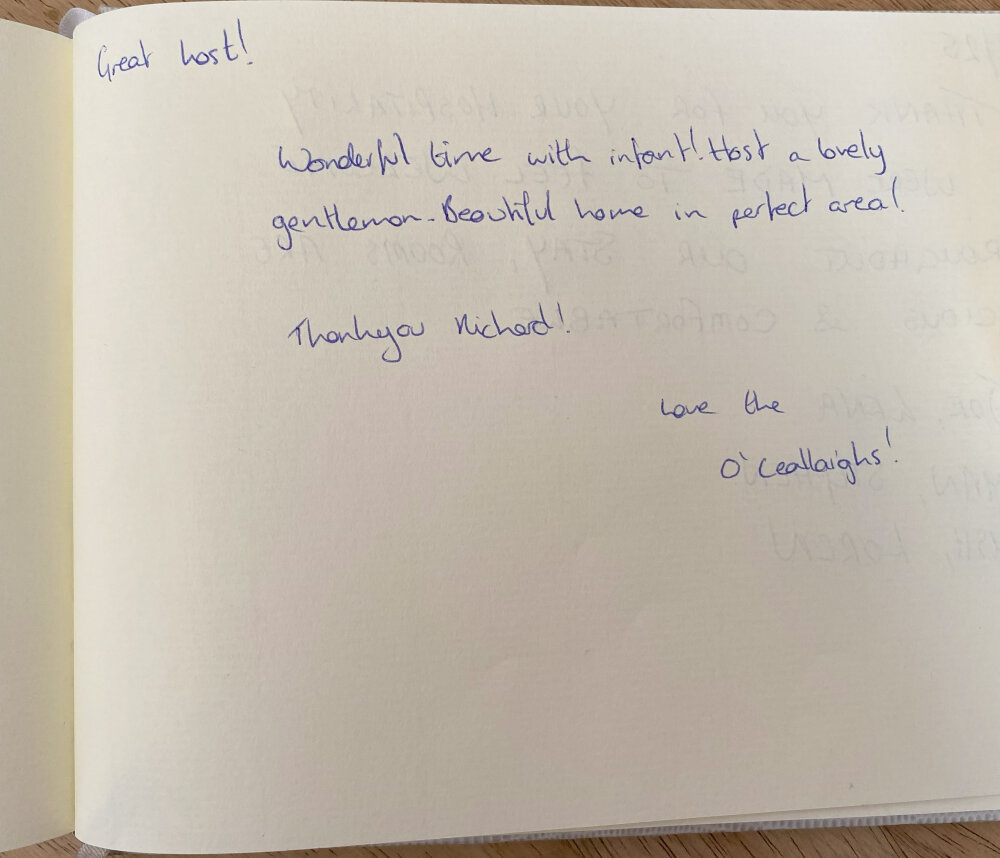 Great host!
Wonderful time with infant! Host a lovely
gentleman. Beautiful home in perfect area!
Thankyou Richard!
Love the
O'Ceallaighs!